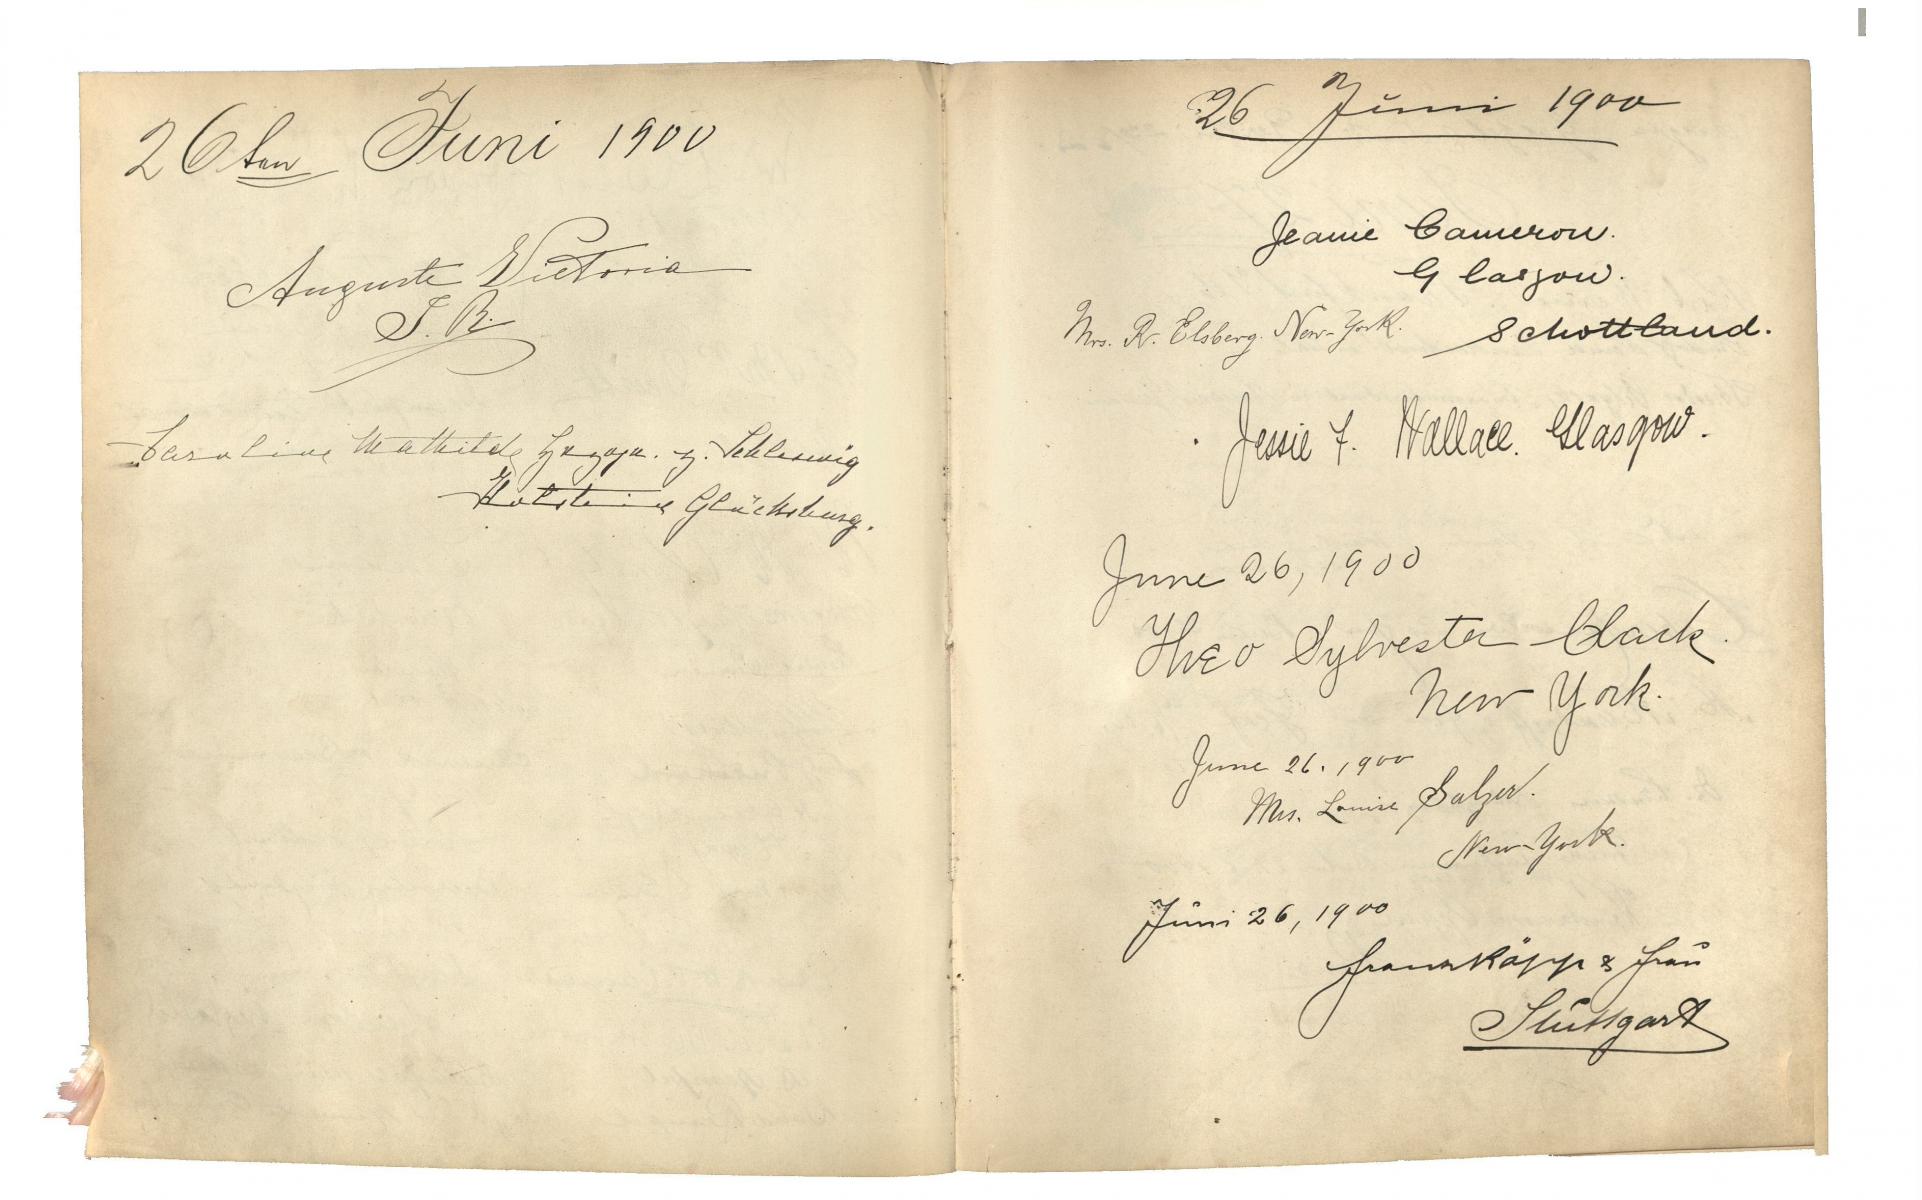 26ten Juni 1900
Auguste Victoria
I. R.
Caroline Mathilde Herzogin. z. Schleswig
Holstein Glücksburg.
26 Juni 1900
Jeanie Cameron.
Glasgow.
Schottland.
Mrs. R. Elsberg. New-York.
Jessie F. Wallace. Glasgow.
June 26, 1900
Theo Sylvester Clark.
New York.
June 26. 1900
Mrs. Louise Salzer.
New-York.
Juni 26, 1900
& Frau
Stuttgart